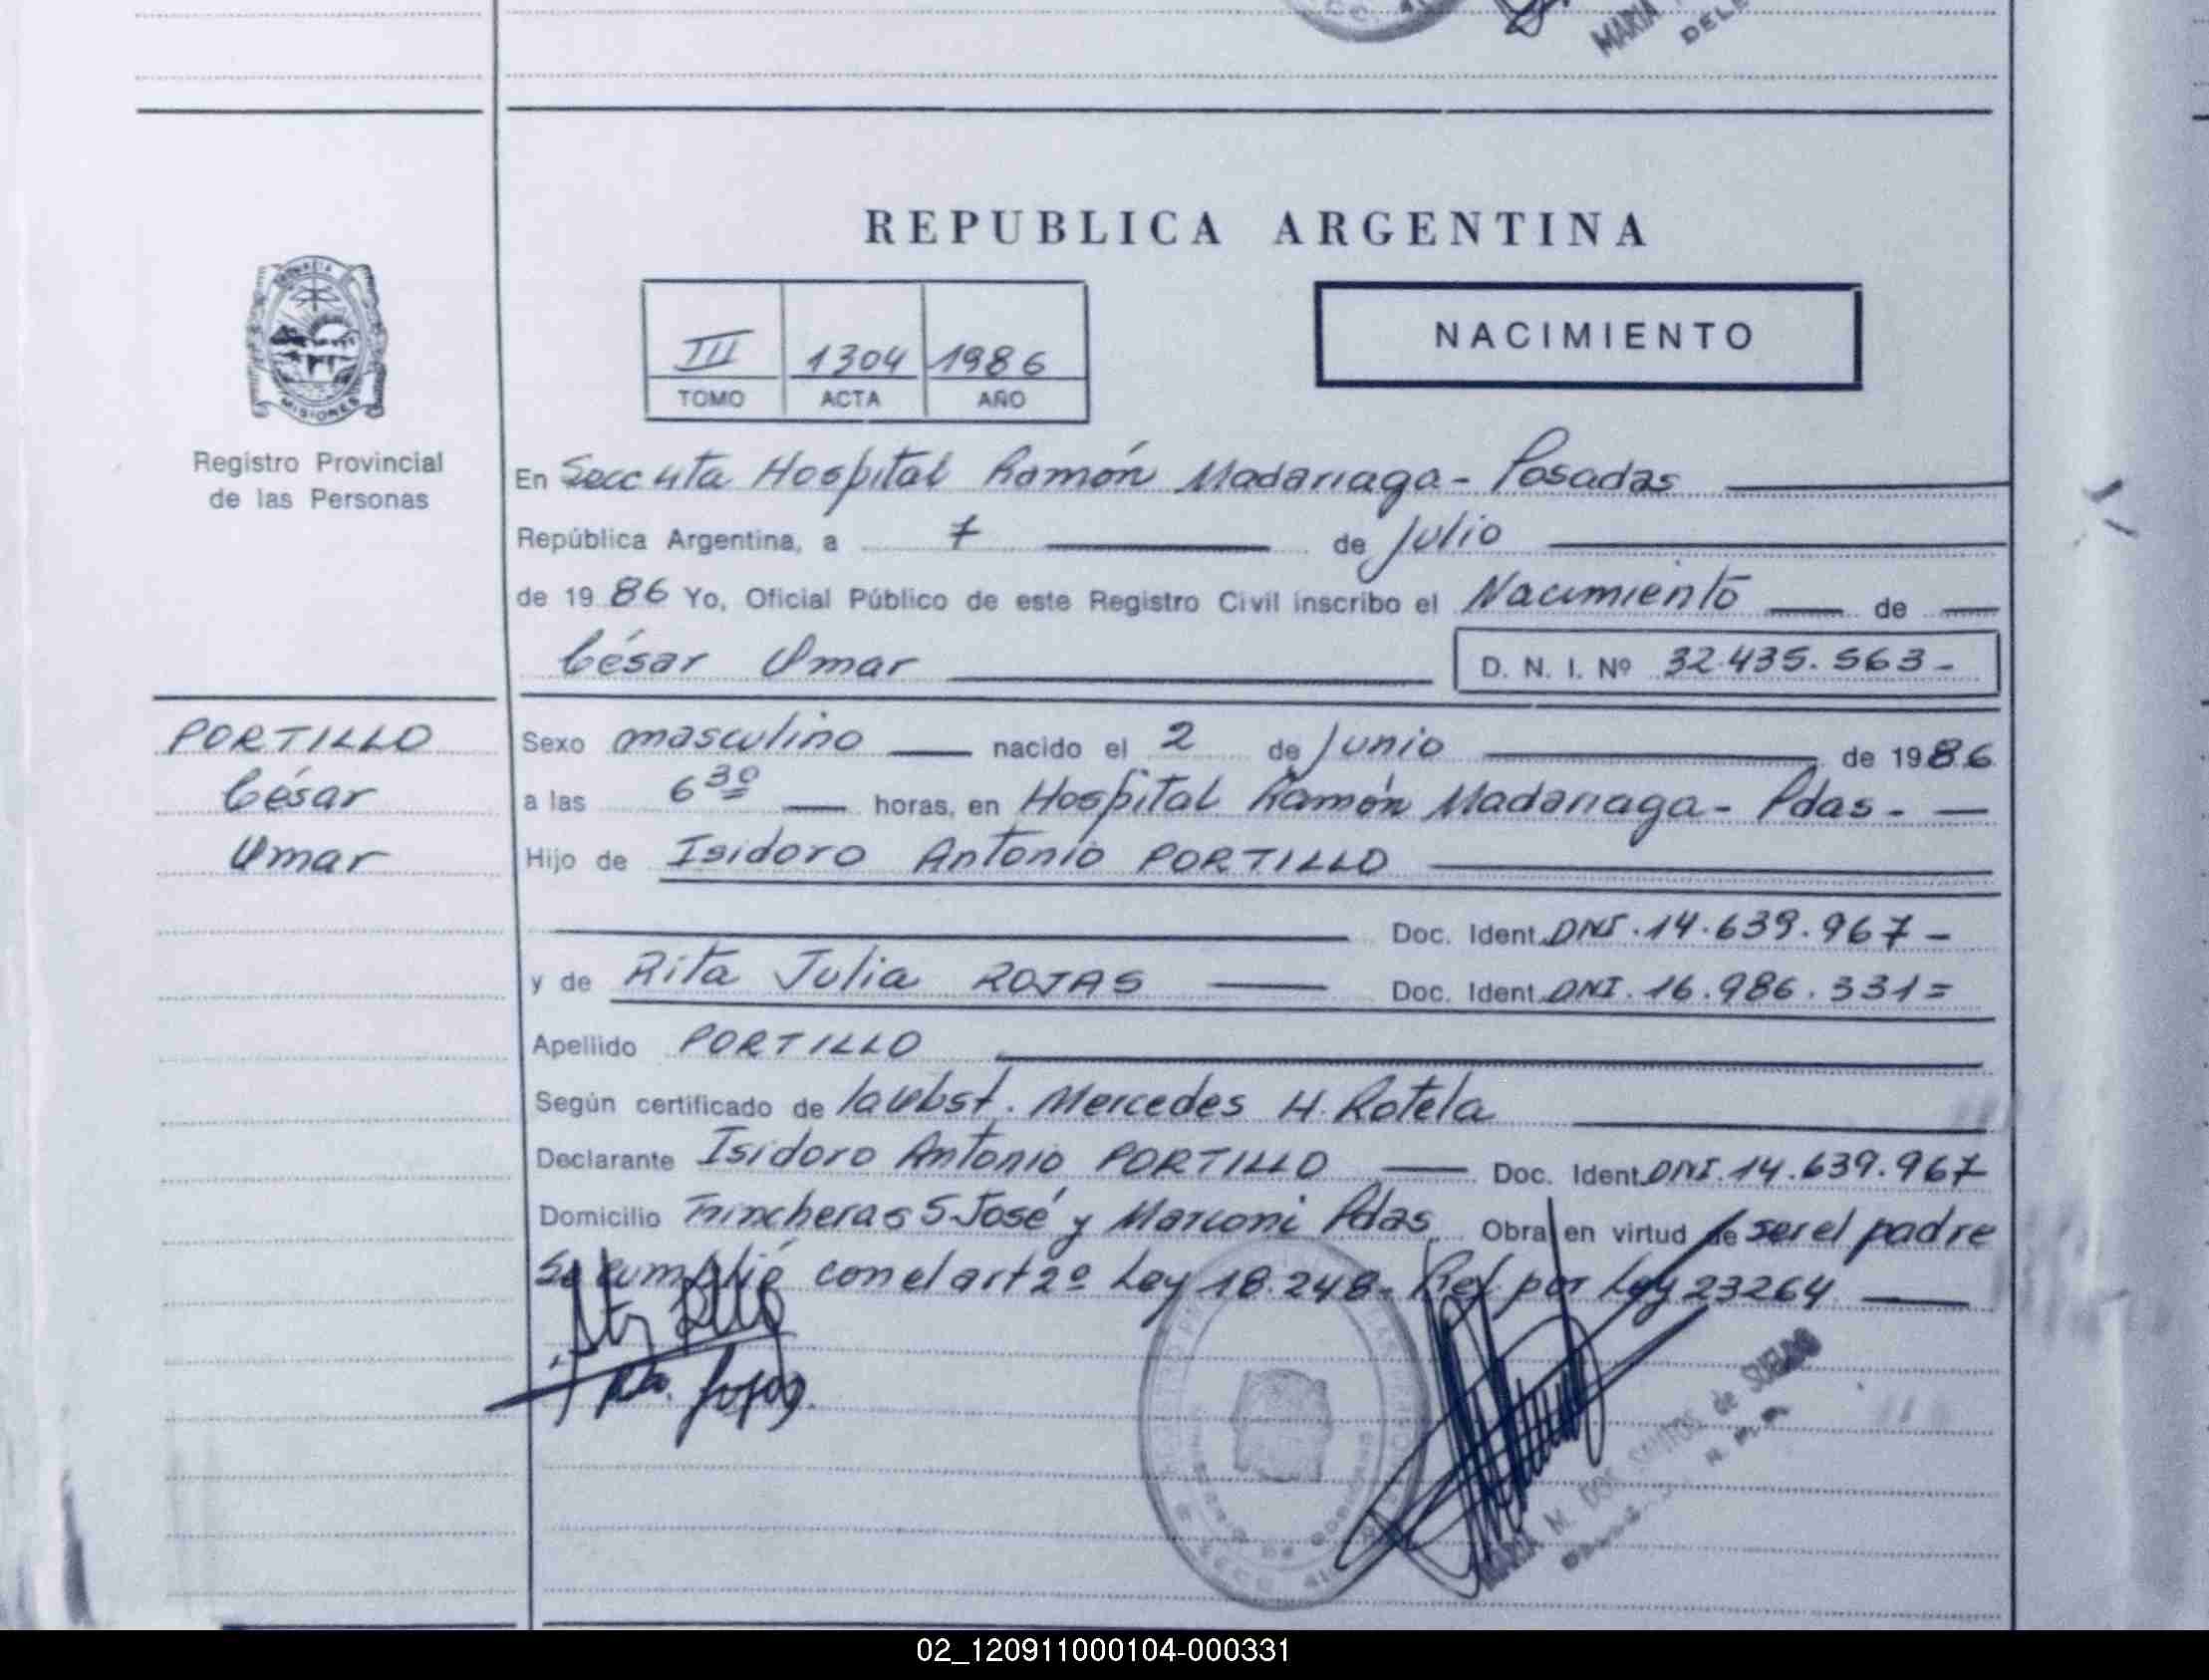 MARIA
DELE
REPUBLICA ARGENTINA
III 1304 1986
TOMO ACTA AÑO
NACIMIENTO
PROVINCIA
MISIONES
Registro Provincial
de las Personas
En Secc 4ta Hospital Ramón Madariaga - Posadas
República Argentina, a 7 de Julio
de 19 86 Yo, Oficial Público de este Registro Civil inscribo el Nacimiento de
César Omar D. N. I. Nº 32.435.563-
PORTILLO
César
Omar
Sexo masculino nacido el 2 de Junio de 1986
a las 6 30 horas, en Hospital Ramón Madariaga - Pdas -
Hijo de Isidoro Antonio PORTILLO
Doc. Ident. DNI. 14.639.967-
y de Rita Julia ROJAS Doc. Ident. DNI. 16.986.331=
Apellido PORTILLO
Según certificado de la obst. Mercedes H. Rotela
Declarante Isidoro Antonio PORTILLO Doc. Ident. DNI. 14.639.967
Domicilio Trincheras S. José y Marconi Pdas. Obra en virtud de ser el padre
Se cumplió con el art 2º Ley 18.248 - Ref. por Ley 23264
MARIA M. DOS SANTOS de
02_120911000104-000331